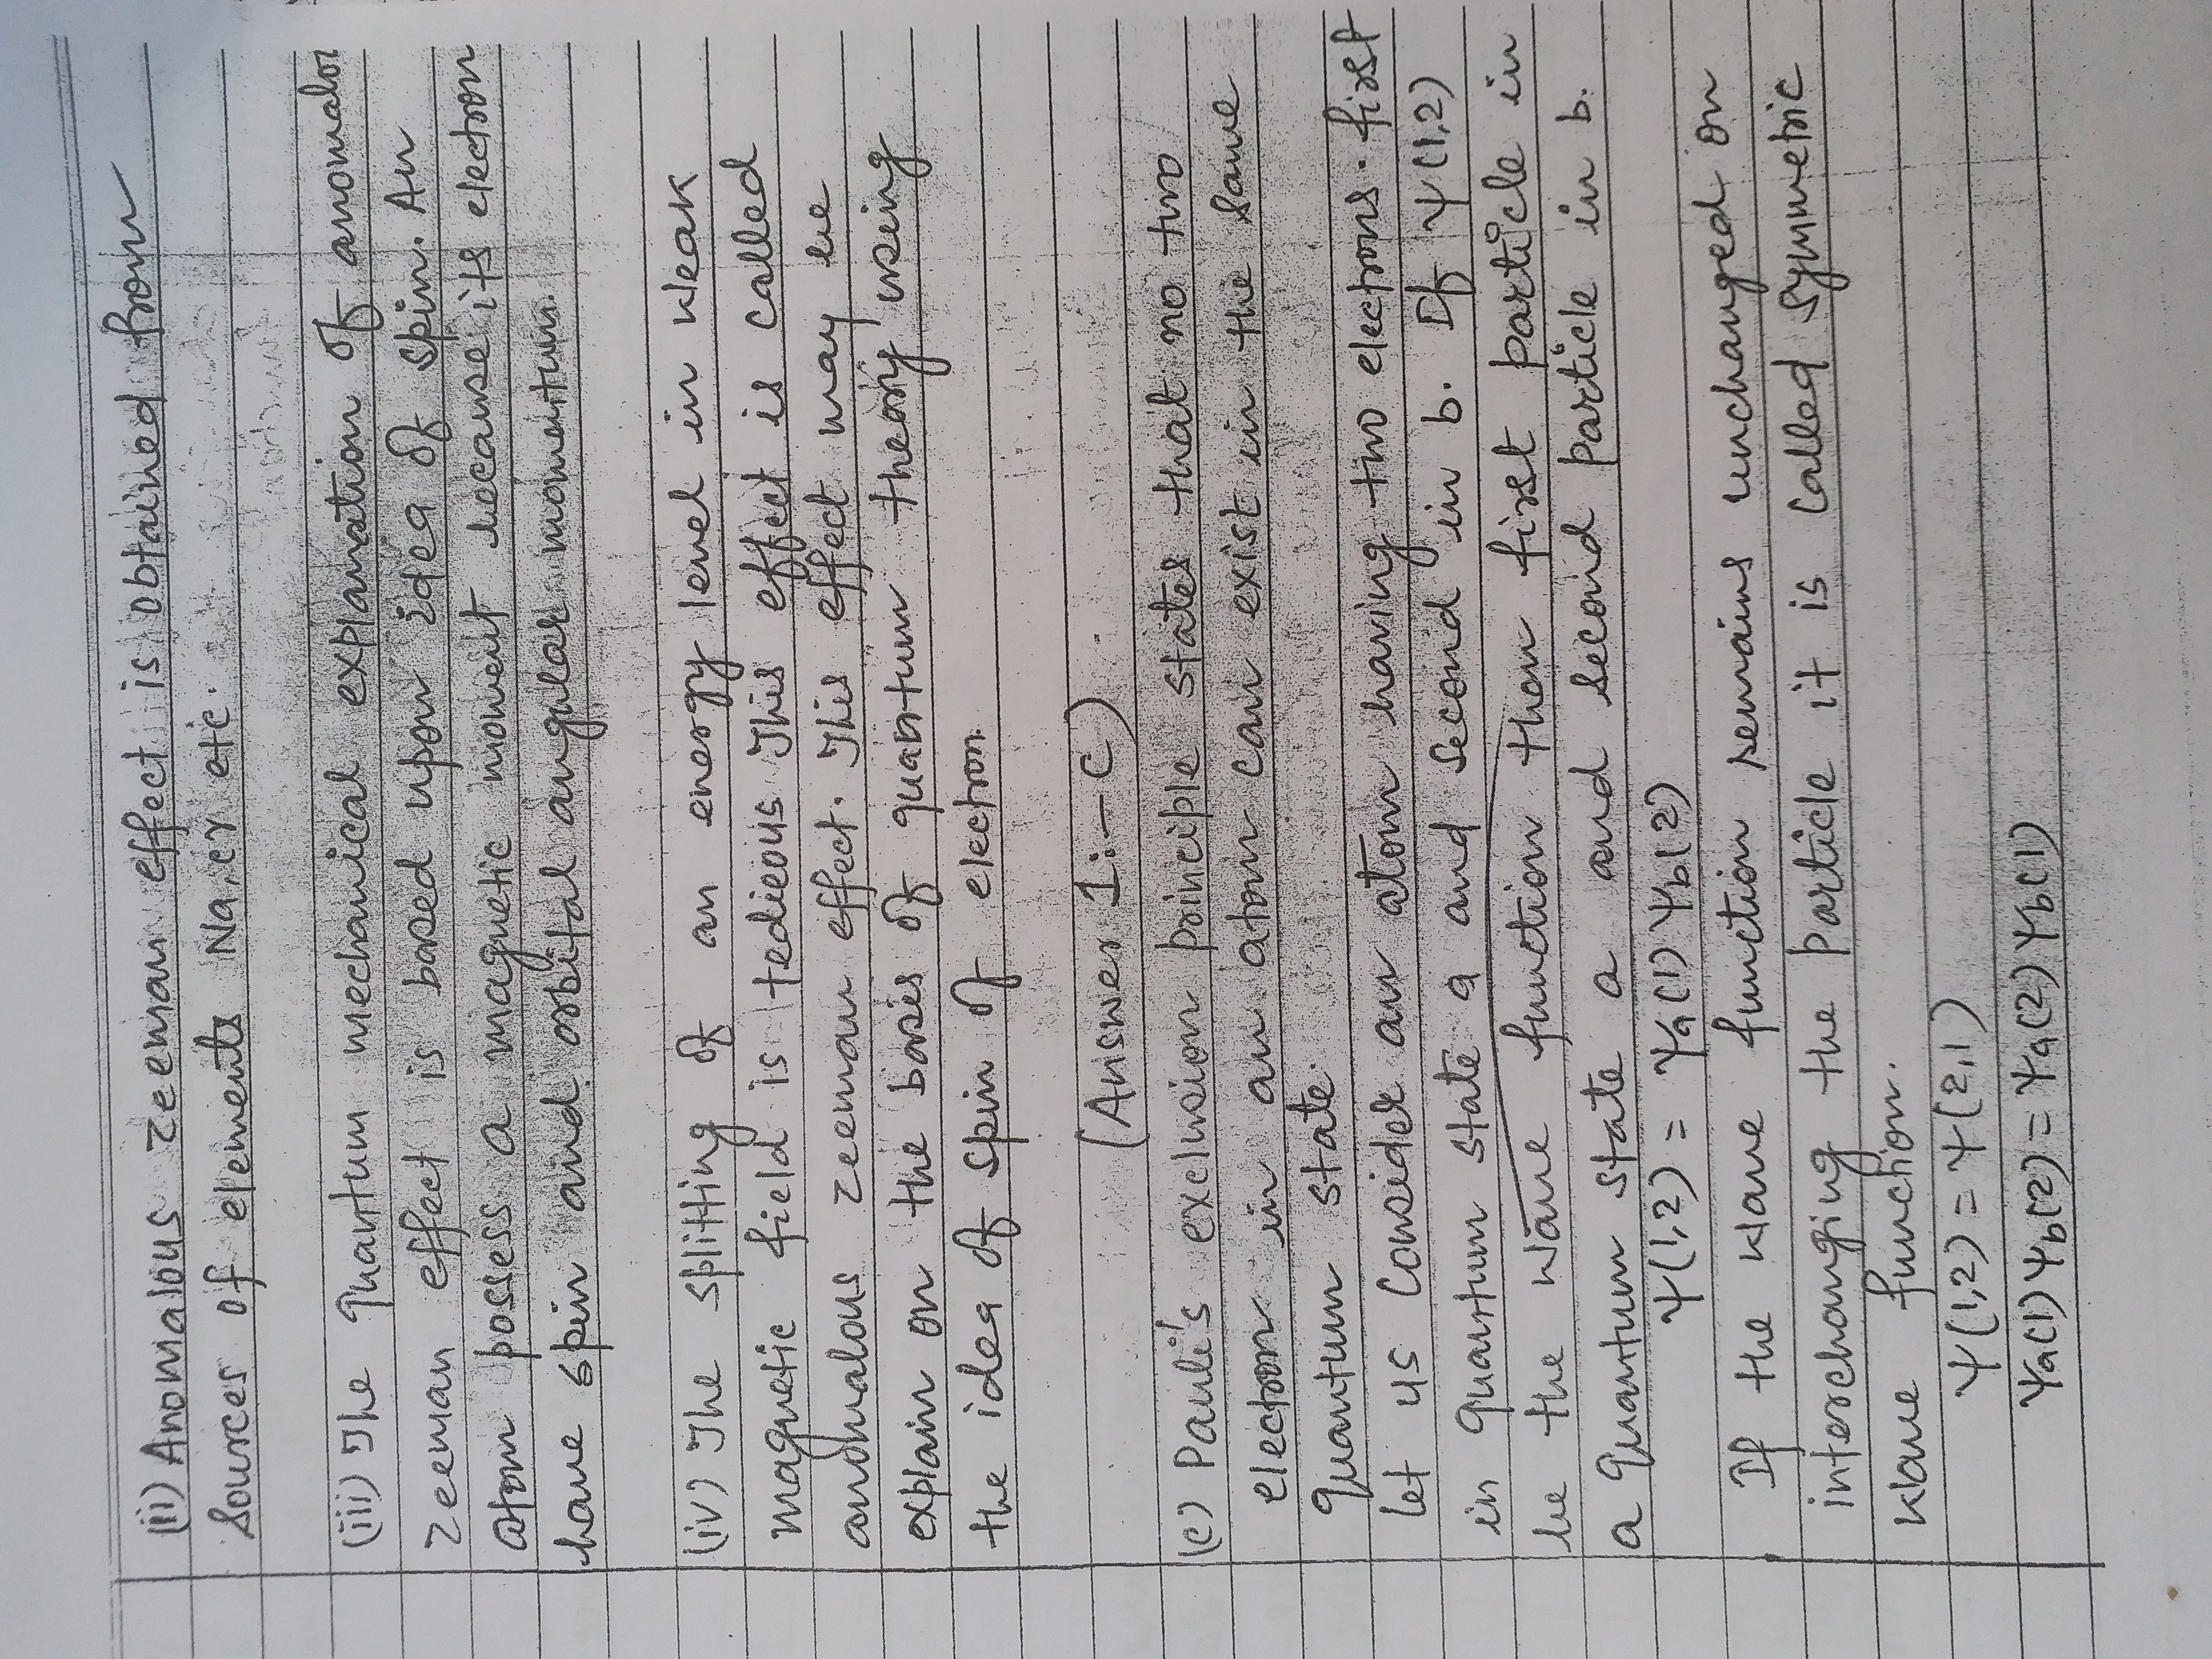 (ii) Anomalous zeeman effect is obtained from
Sources of elements Na, cr etc.
(iii) The quantum mechanical explanation of anomalou
zeeman effect is based upon idea of spin. An
atom possess a magnetic moment because its electron
have spin and orbital angular momentum.
(iv) The splitting of an energy level in weak
magnetic field is tedieous This effect is called
anomalous zeeman effect. This effect may be
explain on the basis of quantum theory using
the idea of spin of electron.
(Answer 1:- C)
(c) Pauli's exclusion principle states that no two
electron in an atom can exist in the same
quantum state.
let us Consider an atom having two electrons. first
in quantum state a and second in b. If Ψ(1,2)
be the wave function then first particle in
a quantum state a and second particle in b.
Ψ(1,2) = Ψa(1) Ψb(2)
If the wave function remains unchanged on
interchanging the particle it is called symmetric
wave function.
Ψ(1,2) = Ψ(2,1)
Ψa(1) Ψb(2) = Ψa(2) Ψb(1)